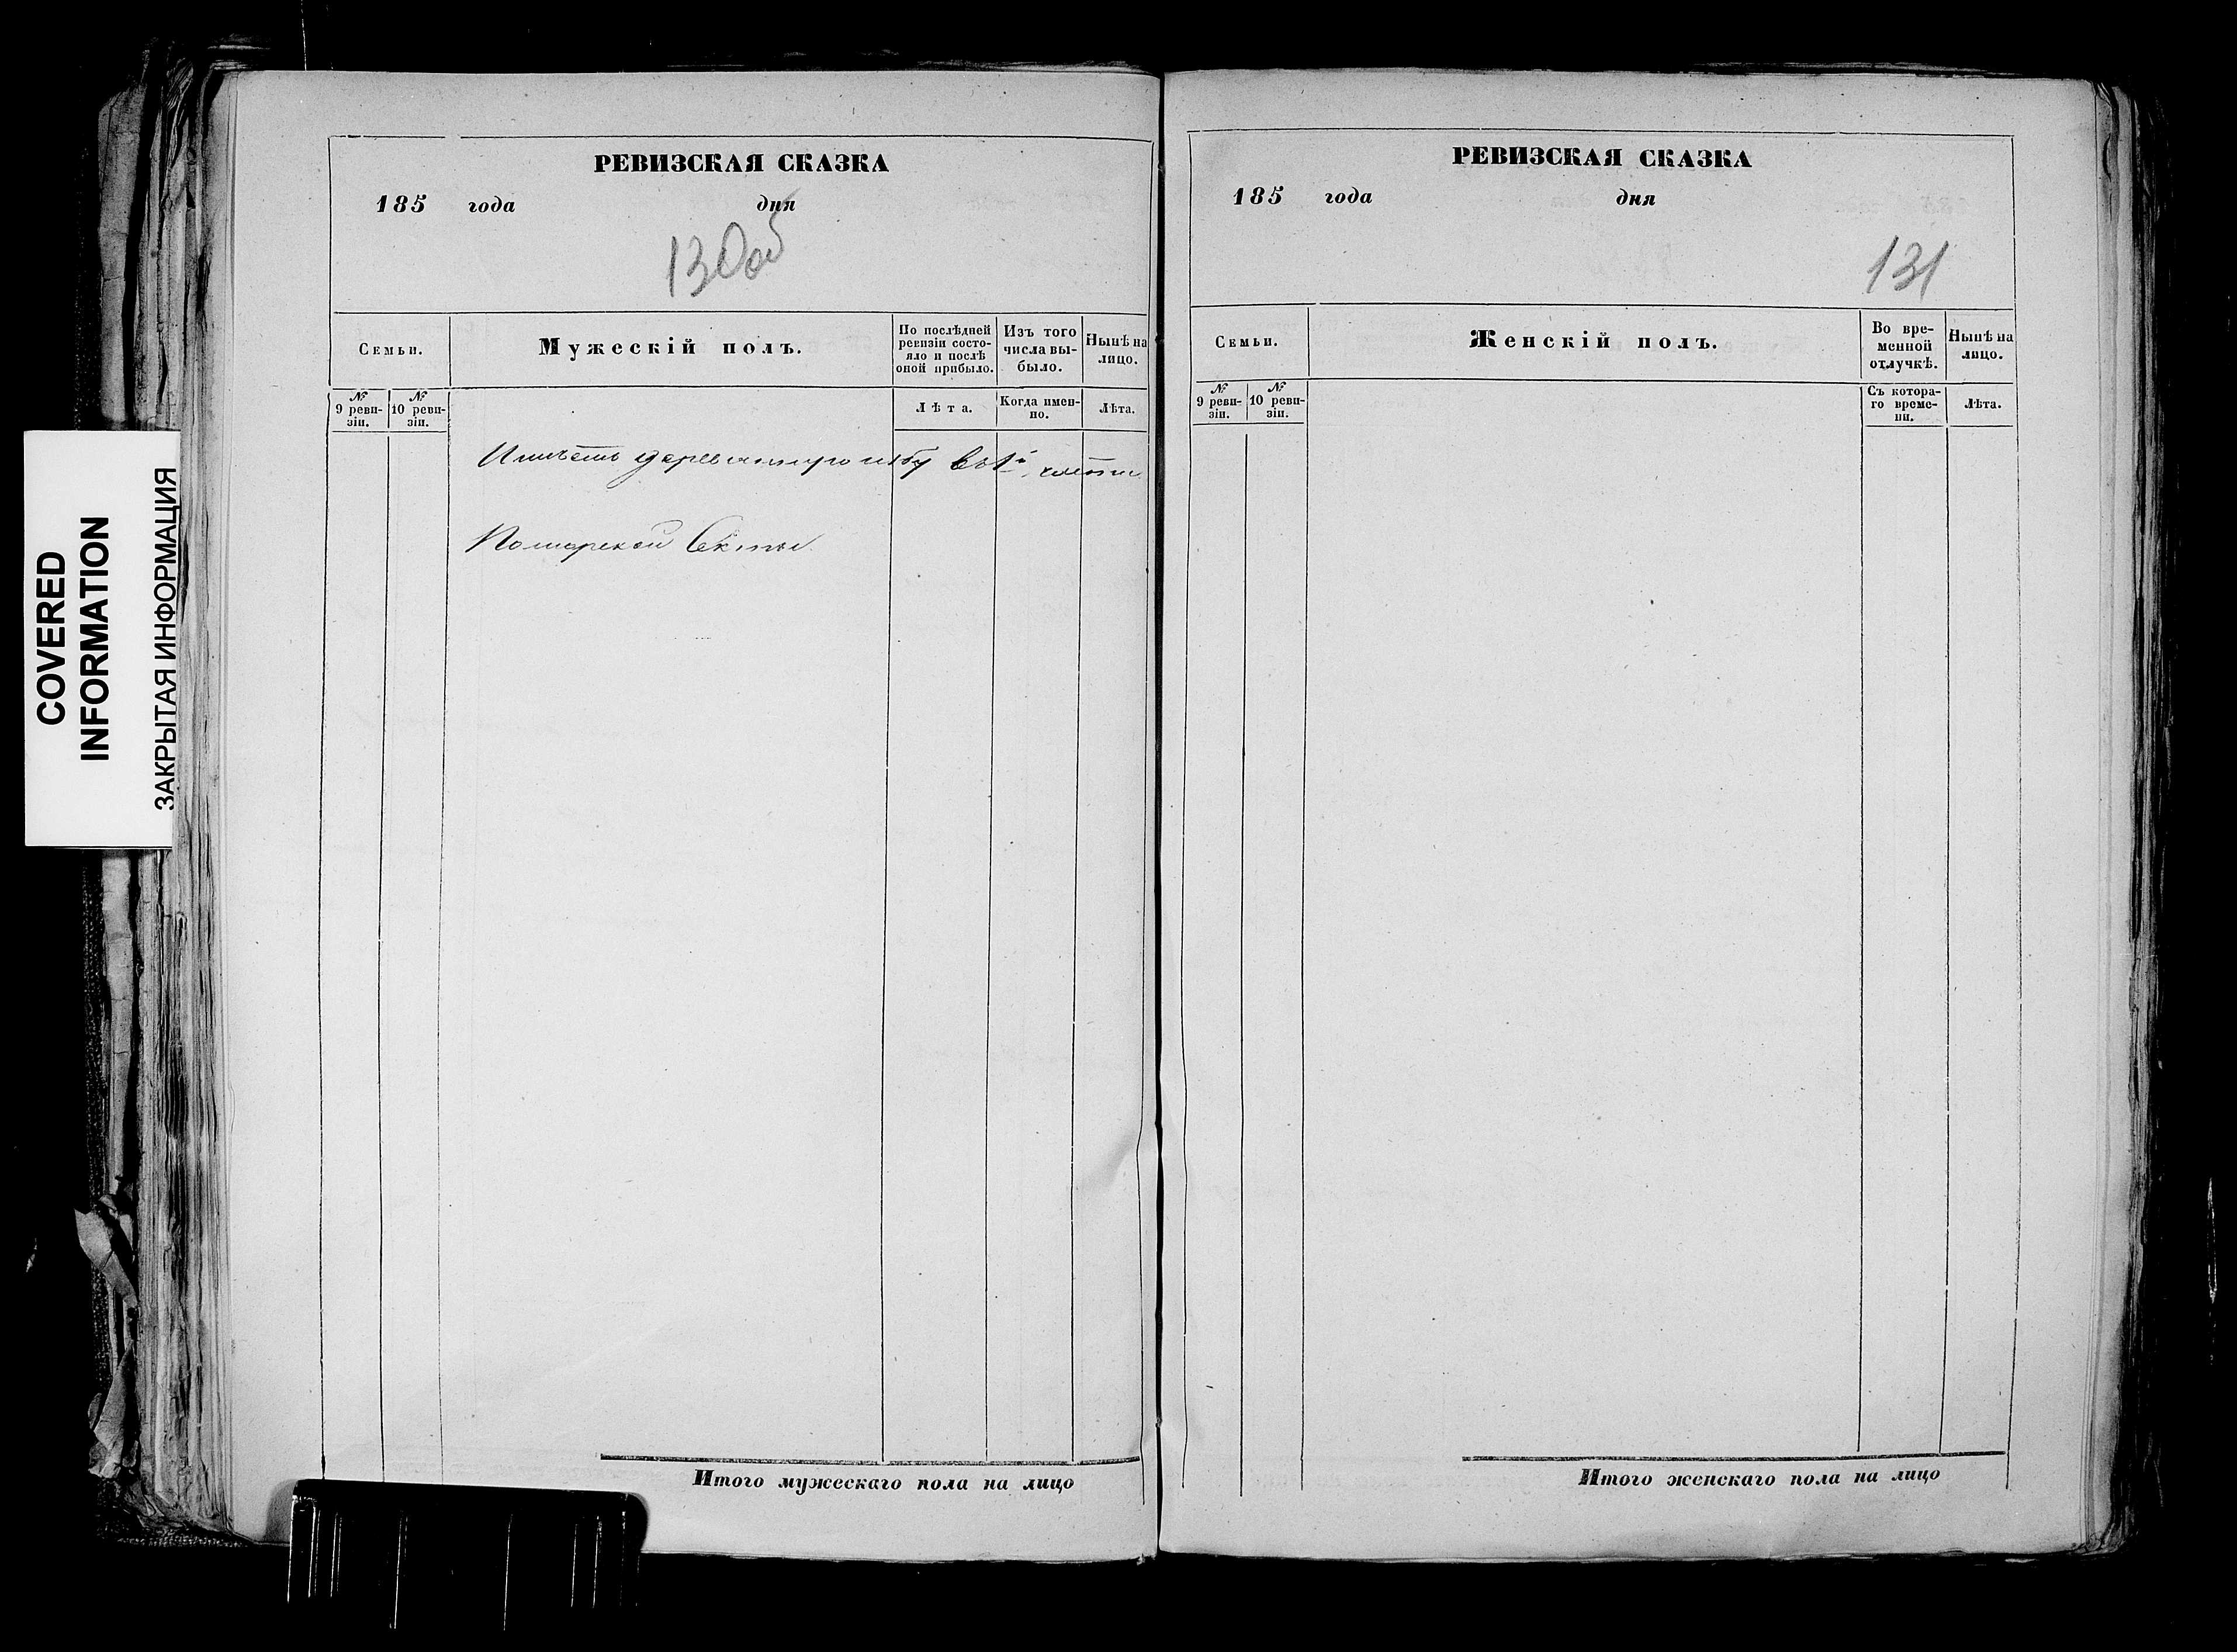 COVERED
INFORMATION
ЗАКРЫТАЯ ИНФОРМАЦИЯ
РЕВИЗСКАЯ СКАЗКА
185 года дня
130 об
Семьи.
Мужескій полъ.
По послѣдней
ревизіи состо-
яло и послѣ
оной прибыло.
Изъ того
числа вы-
было.
Нынѣ на
лицо.
№
9 реви-
зіи.
№
10 реви-
зіи.
Лѣта.
Когда имен-
но.
Лѣта.
Имѣетъ деревянную избу въ 1й части
Поморской Секты.
Итого мужескаго пола на лицо
РЕВИЗСКАЯ СКАЗКА
185 года дня
131
Семьи.
Женскій полъ.
Во вре-
менной
отлучкѣ.
Нынѣ на
лицо.
№
9 реви-
зіи.
№
10 реви-
зіи.
Съ котора-
го време-
ни.
Лѣта.
Итого женскаго пола на лицо